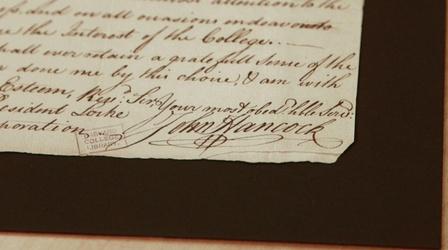 attention to the
ess. And on all occasions endeavour to
the Interest of the College.
hall ever retain a grateful Sense of the
done me by this choice, & am with
Esteem, Revd. Sir, Your most obedt. hble Servt.
esident Locke John Hancock
poration
HARVARD
COLLEGE
LIBRARY